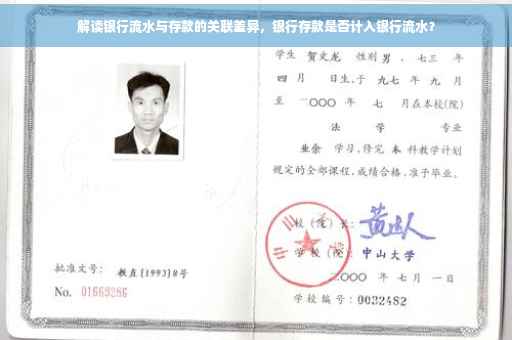 解读银行流水与存款的关联差异，银行存款是否计入银行流水？
学生 贺文龙 性别 男 ，七三 年
四 月 日生，于 九七 年 九 月
至 二〇〇〇 年 七 月在本校(院)
法 学 专业
业余 学习，修完 本 科教学计划
规定的全部课程，成绩合格，准予毕业。
校 (院) 长：
学 校 (院)：中山大学
二〇〇〇 年 七 月 一 日
批准文号： 教直[1993]8号
No. 01669286
学校编号：0032482